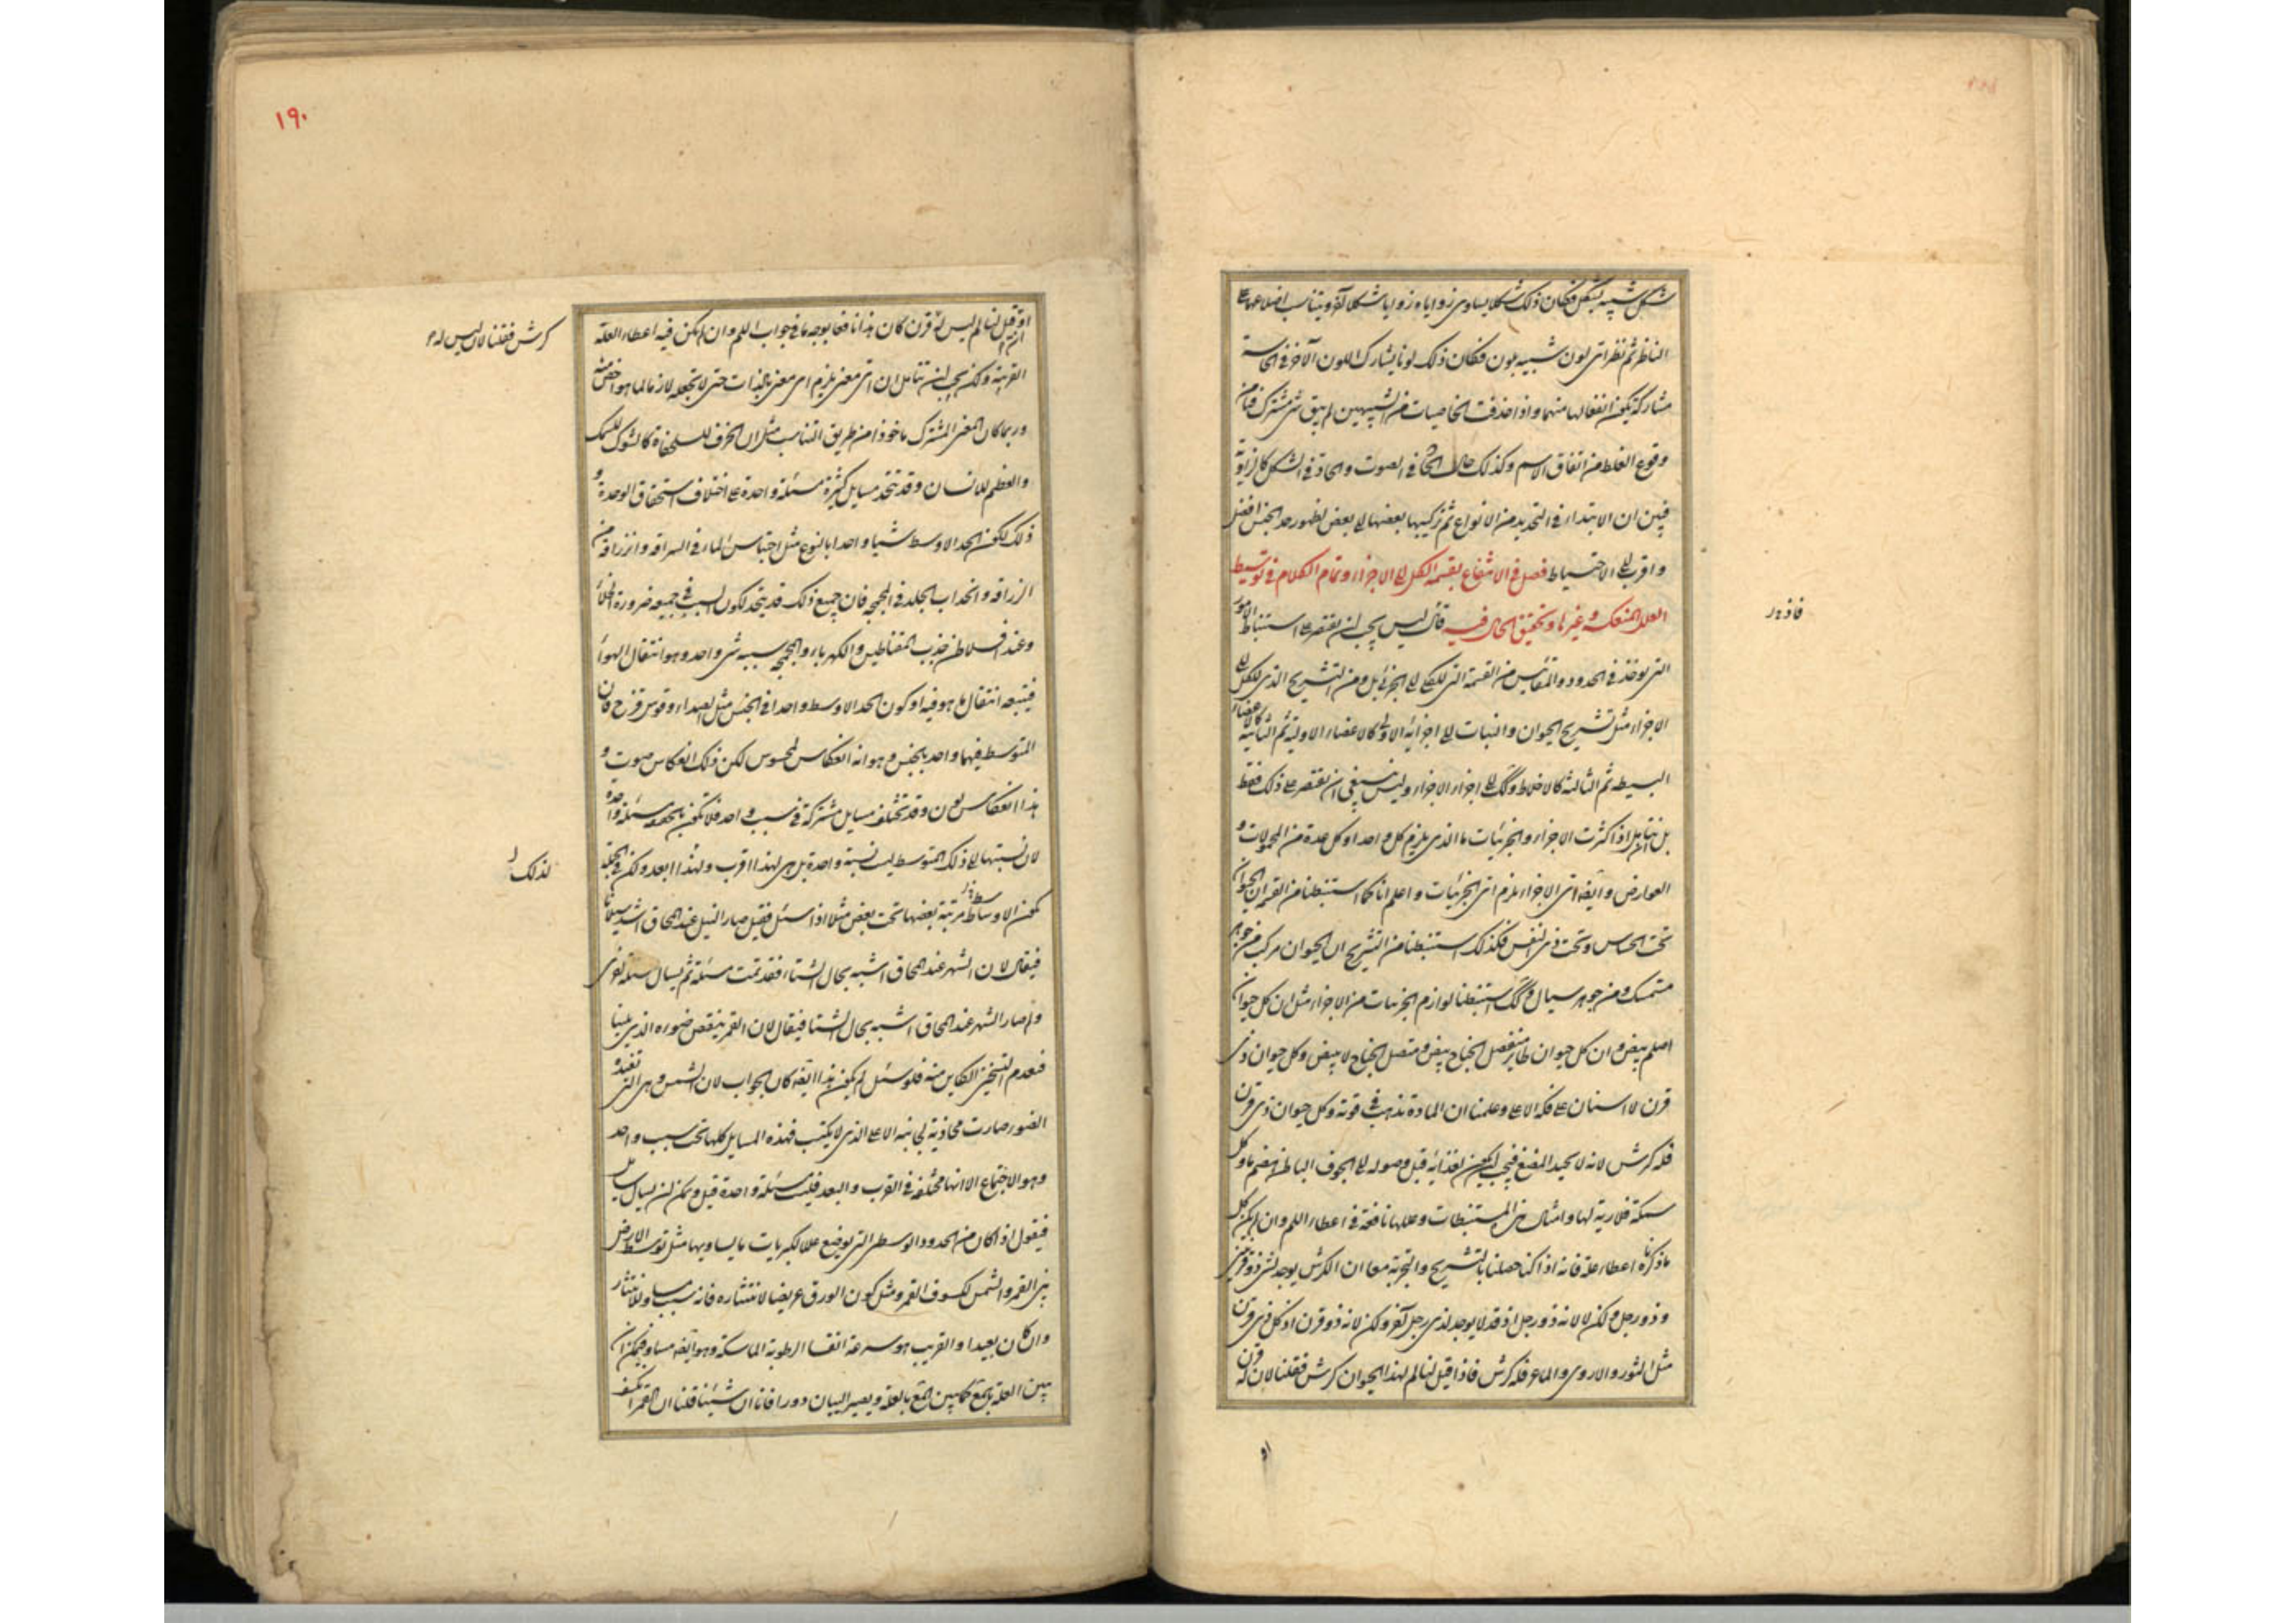 شكل شبيه بشكل فكان ذلك شكلا يساوى زواياه زوايا شكل آخر ويتناسب اضلاعهما
الناظر ثم نظر اى لون شبيه بلون فكان ذلك لونا يشارك اللون الآخر فى الحاسة
مشاركة يكون انفعالها منهما واذا حذفت الخاصيات من الشبيهين لم يبق شئ مشترك
وقوع الغلط من اتفاق الاسم وكذلك حال الحاد فى الصوت والحاد فى الشكل كالزاوية
فبين ان الابتداء فى التحديد من الانواع ثم تركيبها بعضها الى بعض لظهور حد الجنس افضل
واقرب الى الاحتياط فصل فى الانتفاع بقسمة الكل الى الاجزاء وتمام الكلام فى توسيط
العلل المنعكسة وغيرها وتحقيق الحال فيه قال ليس يجب ان نقتصر على استنباط الامور
التى توخذ فى الحدود والمقاييس من القسمة التى للكلى الى الجزئى بل ومن التشريح الذى للكل الى
الاجزاء مثل تشريح الحيوان والنبات الى اجزائه الاولى كالاعضاء الاولية ثم الثانية كالاعضاء
البسيطة ثم الثالثة كالاخلاط وكك الى اجزاء الاجزاء وليس ينبغى ان نقتصر على ذلك فقط
بل نتامل اذا كثرت الاجزاء والجزئيات ما الذى يلزم كل واحد او كل عدة من المحمولات و
العوارض وايضا اى الاجزاء يلزم اى الجزئيات واعلم انا كما استنبطنا من القسمة ان الحيوان
تحت الحساس وتحت ذى النفس فكذلك استنبطنا من التشريح ان الحيوان مركب من جوهر
متمسك ومن جوهر سيال وكك استنبطنا لوازم الجزئيات من الاجزاء مثل ان كل حيوان
اصلم يبيض وان كل حيوان طاير منفصل الجناح يبيض ومتصل الجناح لا يبيض وكل حيوان ذى
قرن لا اسنان على فكه الاعلى وعلمنا ان المادة تذهب فى قوته وكل حيوان ذى قرن
فله كرش لانه لا يجيد المضغ فيجب ان يكون لغذائه قبل وصوله الى الجوف الباطن هضم ما وكل
سمكة فلا رية لها وامثال هذه المستنبطات وعللها نافعة فى اعطاء اللم وان لم يكن كل
ما ذكرناه اعطاء علة فانه اذا كنا حصلنا بالتشريح والتجربة معا ان الكرش يوجد لشئ ذو قرنين
وذو رجل ولكن لا لانه ذو رجل اذ قد لا يوجد لذى رجل آخر ولكن لانه ذو قرن اذ كل ذى قرن
مثل الثور والاروى والماعز فله كرش فاذا قيل لنا لم لهذا الحيوان كرش فقلنا لان له قرن
او
١٩٠
كرش فقلنا لان ليس له
او قيل لنا لم ليس له قرن كان هذا نافعا بوجه ما فى جواب اللم وان لم يكن فيه اعطاء العلة
القريبة ولكن يجب ان نتامل ان اى معنى يلزم اى معنى بالذات حتى لا نجعله لازما لما هو اخص منه
وربما كان المعنى المشترك ماخوذا من طريق التناسب مثل ان الخزف للسلحفاة كالشوك للسمك
والعظم للانسان وقد تتحد مسايل كثيرة مسئلة واحدة على اختلاف استحقاق الوحدة و
ذلك لكون الحد الاوسط شيا واحدا بالنوع مثل احتباس الماء فى السراقة وانزراقه من
الزراقة وانجذاب الجلد فى المحجمة فان جميع ذلك قد يتحد لكون السبب فى جميعه ضرورة الخلأ
وعند افلاطن جذب المغناطيس والكهرباء والمحجمة سببه شئ واحد وهو انتقال الهواء
فيتبعه انتقال ما هو فيه او كون الحد الاوسط واحدا فى الجنس مثل الصداء وقوس قزح فان
المتوسط فيهما واحد بالجنس وهو انه انعكاس لمحسوس لكن ذلك انعكاس صوت و
هذا انعكاس لون وقد تختلف مسايل مشتركة فى سبب واحد فلا تكون بالحقيقة مسئلة واحدة
لان نسبتها الى ذلك المتوسط ليست نسبة واحدة بل هى لهذا اقرب ولهذا ابعد ولكن فى الجملة
لذلك
تكون الاوساط مرتبة بعضها تحت بعض مثلا اذا سئل فقيل صار النيل عند المحاق اشد سيلانا
فيقال لان الشهر عند المحاق اشبه بحال الشتاء فقد تمت مسئلة ثم يسال مسئلة اخرى
ولم صار الشهر عند المحاق اشبه بحال الشتا فيقال لان القمر ينقص ضوءه الذى يلينا
فيعدم التسخين الكاين منه فلو سئل لم يكون هذا ايضا كان الجواب لان الشمس وهى التى تفيده
الضوء صارت محاذية لجانبه الاعلى الذى لا يكتب فهذه المسايل كلها تحت سبب واحد
وهو الاجتماع الا انها مختلفة فى القرب والبعد فليست مسئلة واحدة قيل ويمكن ان يسال سايل
فيقول اذا كان من الحدود الوسطى التى توضع عللا لكبريات ما يساويها مثل توسط الارض
بين القمر والشمس لكسوف القمر ومثل كون الورق عريضا لانتثاره فانه سبب مساو للانتثار
وان كان بعيدا والقريب هو سرعة انفشاء الرطوبة الماسكة وهو ايضا مساو فيمكن ان
يبين العلة بالمع كما يبين المع بالعلة ويصير البيان دورا فانا ان شيئنا قلنا ان القمر انكسف